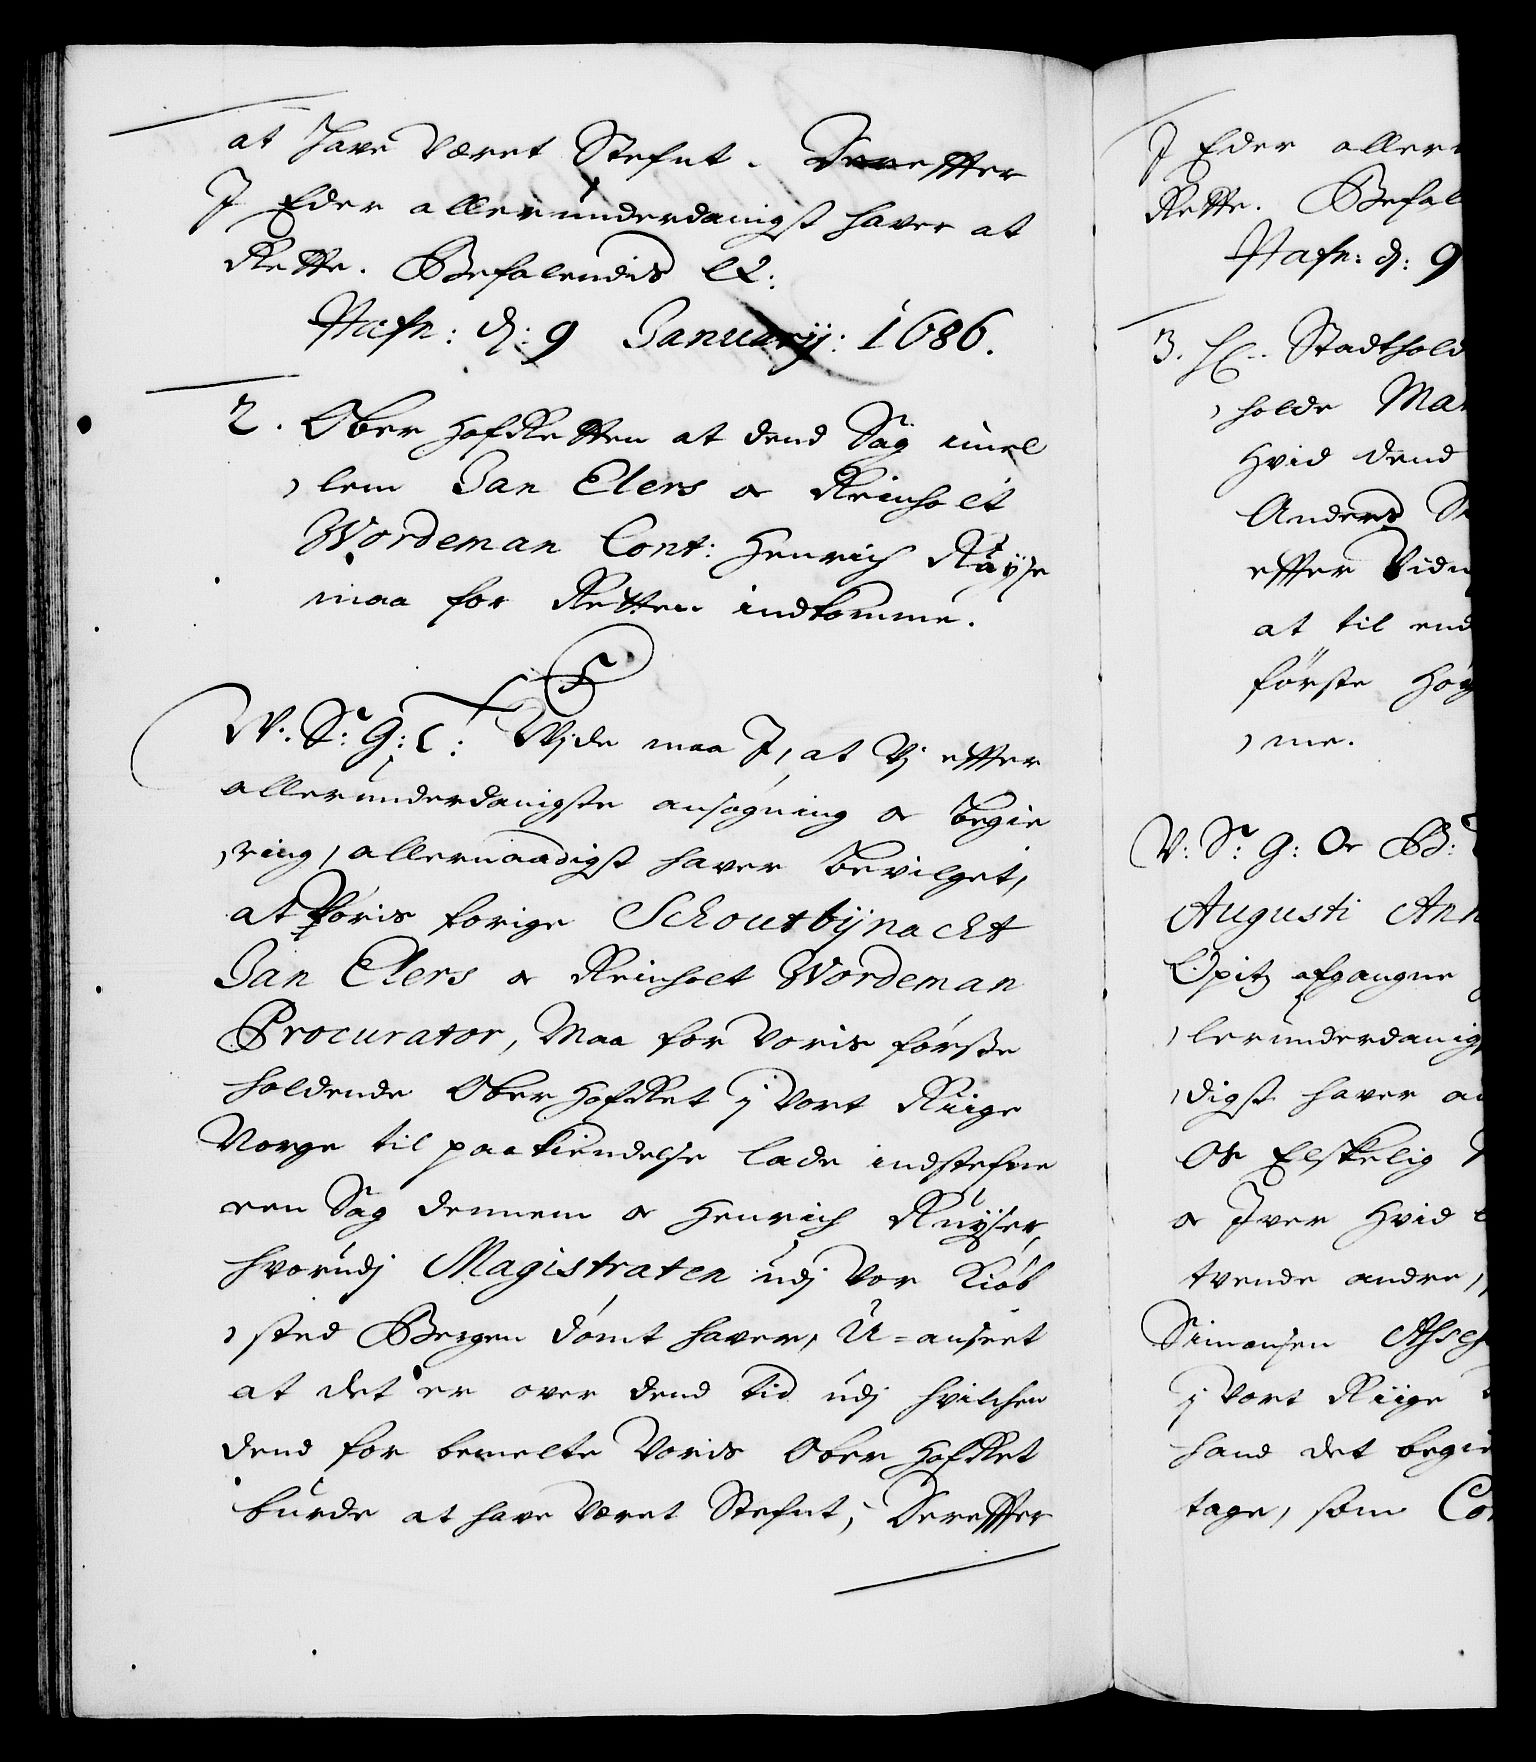 at have Været Stefnt. Dereffter
J Eder allerunderdanigst haver at
Rette. Befalendis etc:
Hafn: d: 9 Januarij: 1686.
2. Ober HofRetten at dend Sag imel
lem Jan Elers oc Reinholt
Wordeman Cont: Henrich Ruyse
maa for Retten indkomme.
C5
W. S: G: C: Wide maa J, at Vj effter
allerunderdanigste ansøgning oc begie
ring, allernaadigst haver bevilget,
at Voris forige Schoutbijnacht
Jan Elers oc Reinholt Wordeman
Procurator, Maa for Voris første
holdende Ober HofRet j Vort Riige
Norge til paakiendelse lade indstefne
een Sag dennem oc Henrich Ruyser,
hvorudj Magistraten udj Vor Kiøb
sted Bergen dømt haver, U-anseet
at det er over dend tid udj hvilchen
dend for bemelte Voris Ober HofRet
burde at have Været Stefnt, Dereffter
J Eder aller
Rette. Befal
Hafn: d: 9
3. H. Stadthold
holde Mar
Hvid dend
Anders
effter Vidn
at til end
første Høy
me.
V: S: G: Oc B:
Augusti Ann
Opitz afgangne
lerunderdanig
digst haver
Os Elskelig
oc Iver Hvid
tvende andre,
Simonsen Assess
j Vort Riige
hand det begie
tage, som Co